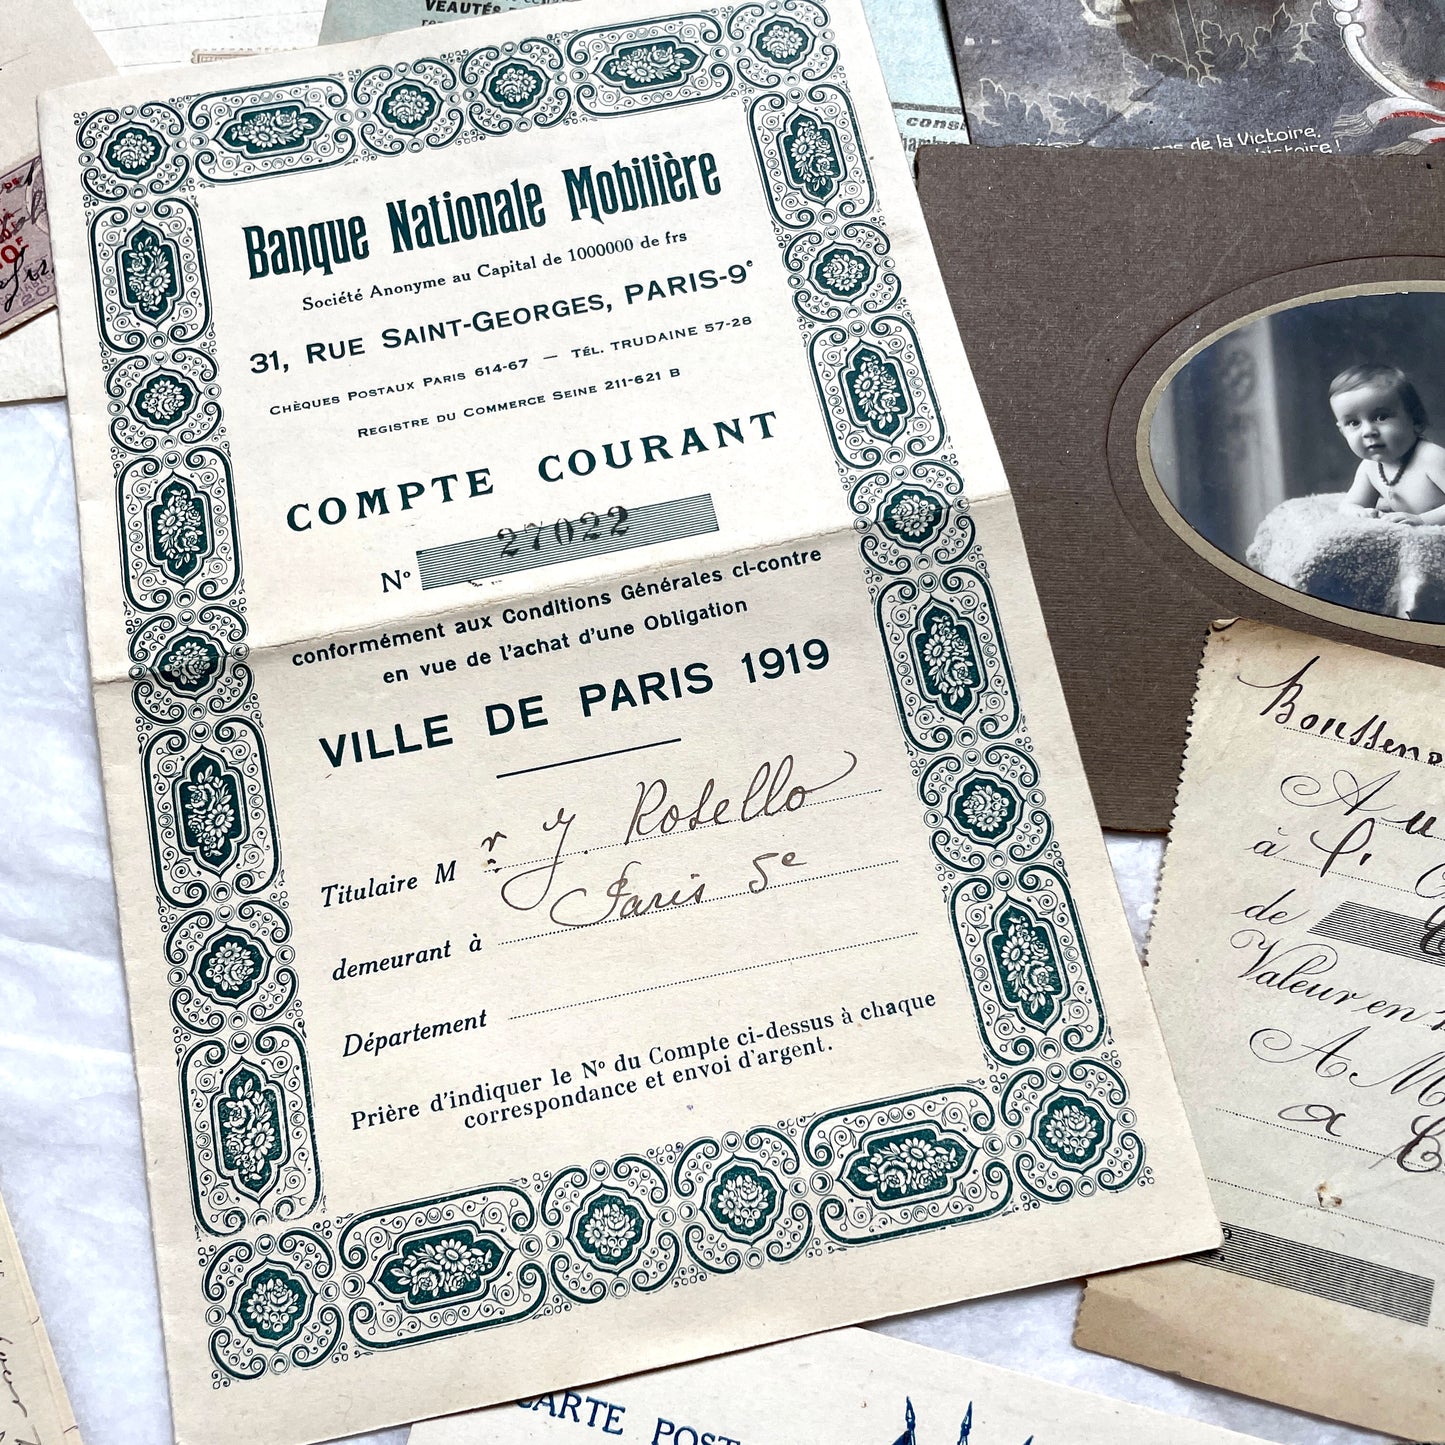 VEAUTÉS
de la Victoire.
Banque Nationale Mobilière
Société Anonyme au Capital de 1000000 de frs
31, RUE SAINT-GEORGES, PARIS-9e
CHÈQUES POSTAUX PARIS 614-67 — TÉL. TRUDAINE 57-28
REGISTRE DU COMMERCE SEINE 211-621 B
COMPTE COURANT
No 27022
conformément aux Conditions Générales ci-contre
en vue de l'achat d'une Obligation
VILLE DE PARIS 1919
Titulaire M r J. Rosello
demeurant à Paris 5e
Département
Prière d'indiquer le No du Compte ci-dessus à chaque
correspondance et envoi d'argent.
à
de
Valeur en
A M
CARTE POST